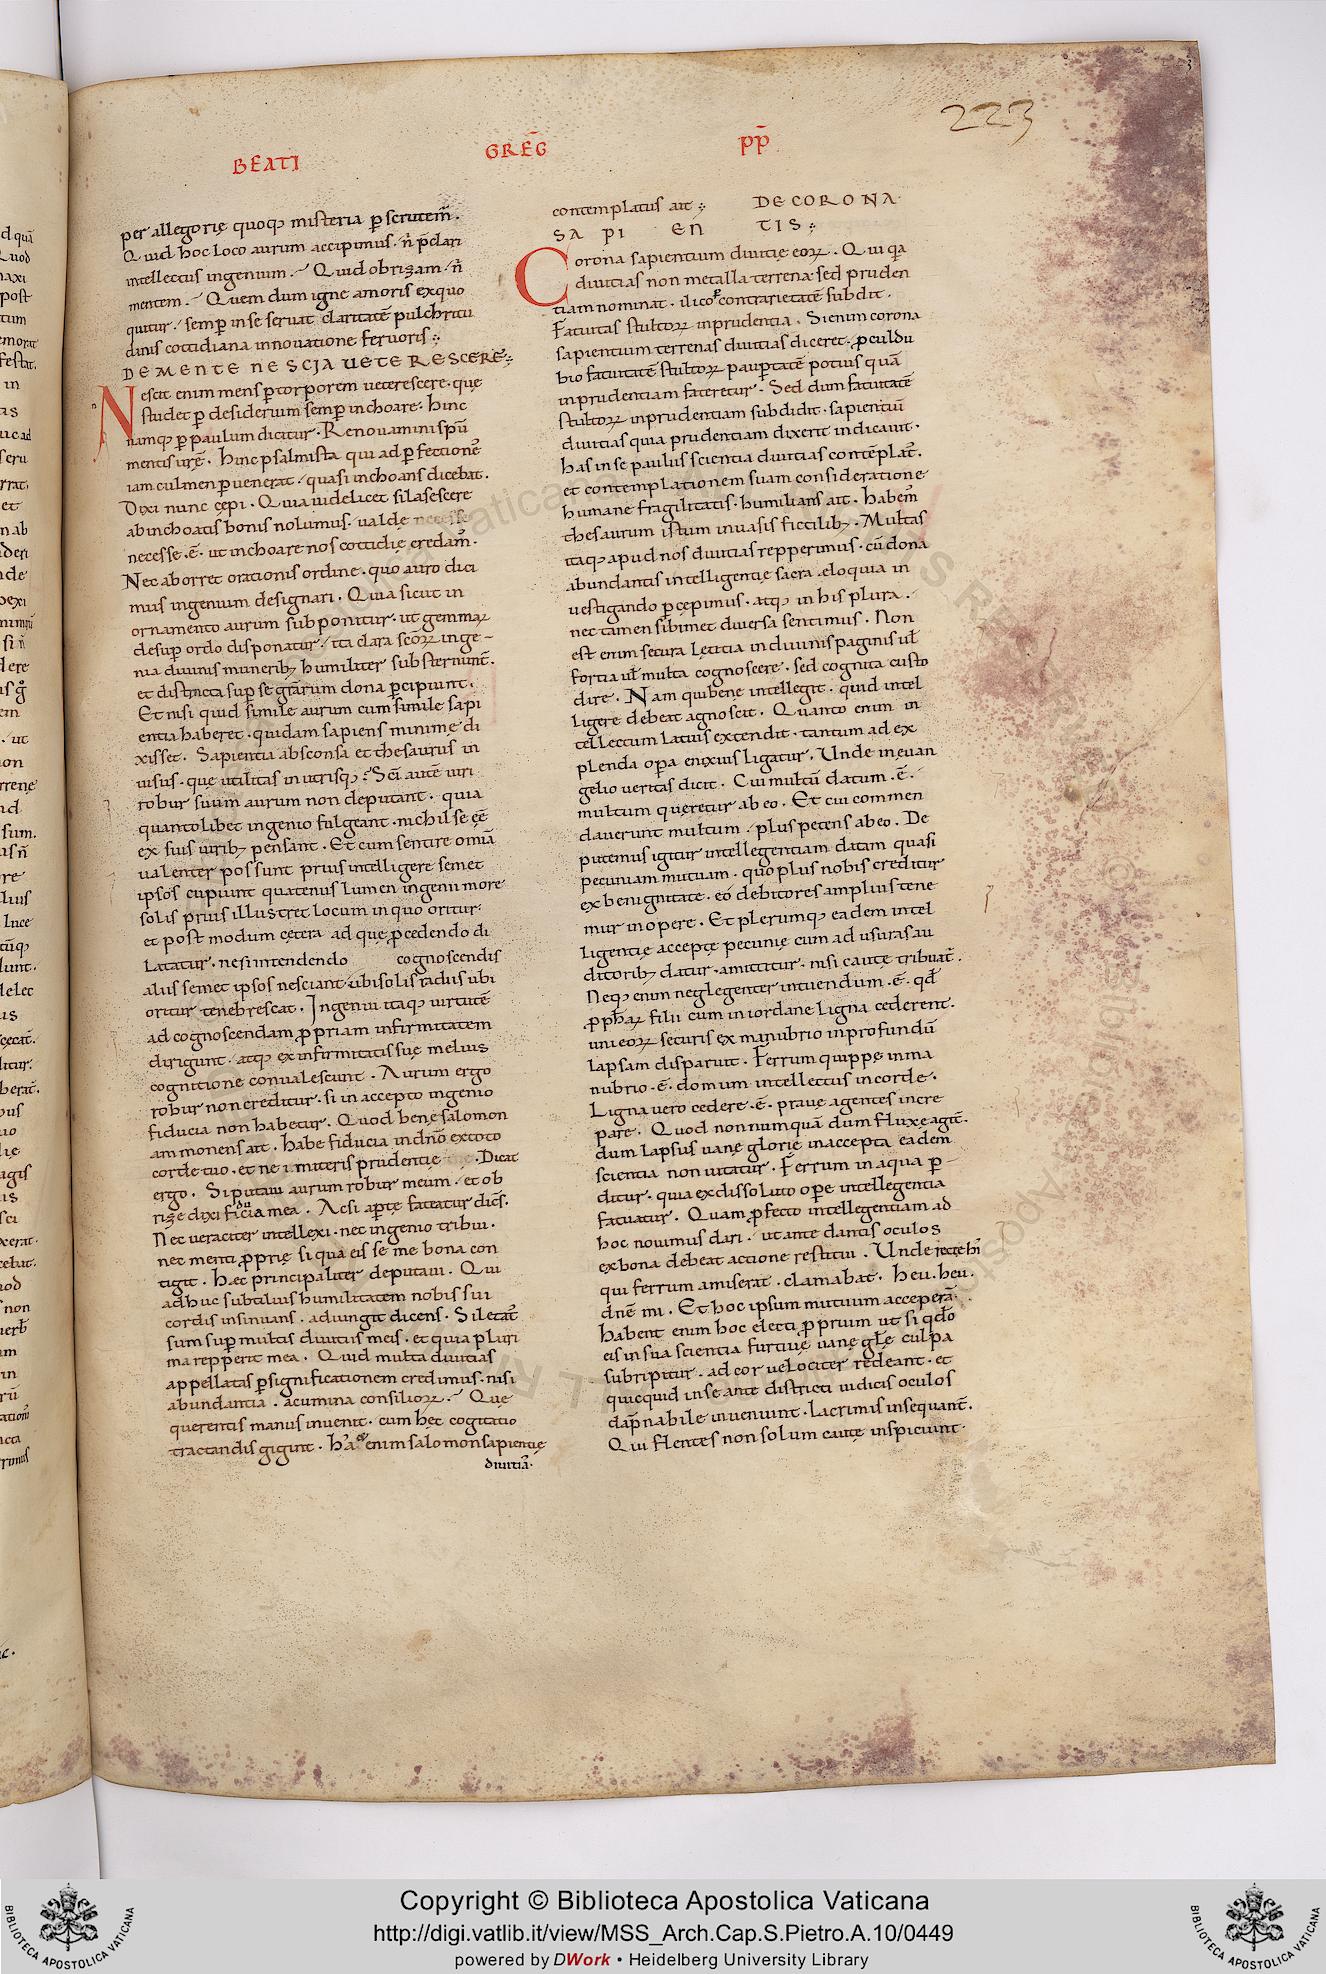 223
BEATI GREḠ PP̄
per allegorię quoq; misteria p̱scrutem̄.
Quid hoc loco aurum accipimus. n̄ p̄clari
intellectus ingenium. Quid obrizam. n̄
mentem. Quem dum igne amoris exquo
quitur. semp̱ in se seruat claritatē pulchritu
dinis cottidiana innouatione feruoris:
DEMENTE NESCIA VETERESCERE:
Nescit enim mens p̱ torporem ueterescere. quę
studet p̱ desiderium semp̱ inchoare. hinc
namq; p̱ paulum dicitur. Renouamini sp̄u
mentis urē. hinc psalmista qui ad p̱fectionē
iam culmen p̱uenerat. quasi inchoans dicebat.
Dixi nunc cępi. Quia uidelicet si lasescere
ab inchoatis bonis nolumus. ualde
necesse .ē. ut inchoare nos cottidię credam̄.
Nec aborret orationis ordine. quo auro dici
mus ingenium designari. Quia sicut in
ornamento aurum subponitur. ut gemmaꝝ
desup̱ ordo disponatur. ita clara sc̄oꝝ inge
nia diuinis munerib; humiliter substernunt̄.
et distincta sup̱ se gr̄arum dona p̱cipiunt.
Et nisi quid simile aurum cum simile sapi
entia haberet. quidam sapiens minime di
xisset. Sapientia absconsa et thesaurus in
uisus. quę utilitas in utrisq;. Sc̄i autē uiri
robur suum aurum non deputant. quia
quantolibet ingenio fulgeant. nichil se eē
ex suis uirib; pensant. Et cum sentire om̄a
ualenter possunt prius intelligere semet
ipsos cupiunt quatenus lumen ingenii more
solis prius illustret locum in quo oritur.
et post modum cętera ad que p̱cedendo di
latatur. ne si intendendo cognoscendis
alus semet ipsos nesciant. ubi solis radius ubi
oritur tenebrescat. Ingenii itaq; uirtutē
ad cognoscendam p̱priam infirmitatem
dirigunt. atq; ex infirmitatis suę melius
cognitione conualescunt. Aurum ergo
robur non creditur. si in accepto ingenio
fiducia non habetur. Quod benę salomon
ammonens ait. habe fiducia in dn̄o ex toto
corde tuo. et ne inniteris prudentię. Dicat
ergo. Si putaui aurum robur meum. et ob
rizę dixi fiducia mea. Ac si aptę fateatur dics̄.
Nec ueraciter intellexi. nec ingenio tribui.
nec menti p̱prię si qua eis se me bona con
tigit. Hæc principaliter deputaui. Qui
adhuc subtilius humilitatem nobis sui
cordis insinuans. adiungit dicens. Si letat'
sum sup̱ multis diuitiis meis. et quia pluri
ma repperit mea. Quid multa diuitias
appellatas p̱ significationem credimus. nisi
abundantia. acumina consilioꝝ. Quę
querentis manus inuenit. cum hęc cogitatio
tractandis gignit. enim salomon sapientię
diuitia.
contemplatus ait: DE CORONA
SAPIENTIS:
Corona sapientium diuitię eoꝝ. Qui q̄a
diuitias non metalla terrena. sed pruden
tiam nominat. ilico contrarietatē subdit.
Fatuitas stultoꝝ inprudentia. Si enim corona
sapientium terrenas diuitias diceret. p̱culdu
bio fatuitatē stultoꝝ paup̱tatē potius quā
inprudentiam fateretur. Sed dum fatuitatē
stultoꝝ inprudentiam subdidit. sapientiū
diuitias quia prudentiam dixerit indicauit.
has in se paulus scientia diuitias contēplat'.
et contemplationem suam consideratione
humane fragilitatis. humilians ait. Habem̄
thesaurum istum in uasis fictilib;. Multas
itaq; apud nos diuitias repperimus. cū dona
abundantis intelligentię sacra eloquia in
uestigando p̱cepimus. atq; in his plura.
nec tamen sibimet diuersa sentimus. Non
est enim secura lętitia in diuinis paginis ul'
fortia ul' multa cognoscere. sed cognita custo
dire. Nam qui bene intellegit. quid intel
ligere debeat agnoscit. Quanto enim in
tellectum latius extendit. tantum ad ex
plenda op̱a enixius ligatur. Unde in euan
gelio ueritas dicit. Cui multū datum .ē.
multum queretur ab eo. Et cui commen
dauerunt multum. plus petens ab eo. De
putemus igitur intellegentiam datam quasi
pecuniam mutuam. quo plus nobis creditur
ex benignitate. eo debitores amplius tene
mur in opere. Et plerumq; eadem intel
ligentię acceptę pecunię cum ad usuras au
ditorib; datur. amittitur. nisi cautę tribuat'.
Neq; enim neglegenter intuendum .ē. qd̄
p̱ph̄aꝝ filii cum in iordane ligna cederent.
uni eoꝝ securis ex manubrio in profundū
lapsam disparuit. Ferrum quippę in ma
nubrio .ē. domum intellectus in corde.
Ligna uero cedere .ē. prauę agentes incre
pare. Quod nonnumquā dum fluxę agit'.
dum lapsus uanę glorię in accepta eadem
scientia non uitatur. Ferrum in aqua p̱
ditur. quia ex dissoluto op̱e intellegentia
fatuatur. Quam p̱fecto intellegentiam ad
hoc nouimus dari. ut ante dantis oculos
ex bona debeat actione restitui. Unde recte hi'
qui ferrum amiserat. clamabat. Heu. heu.
dn̄e mi. Et hoc ipsum mutuum acceperā.
Habent enim hoc electi p̱prium ut si q̄do
eis in sua scientia furtiuę uanę gl'ę culpa
subripitur. ad cor uelociter redeant. et
quicquid in se ante districti iudicis oculos
dāpnabile inueniunt. lacrimis insequant̄.
Qui flentes non solum cautę inspiciunt.
Copyright © Biblioteca Apostolica Vaticana
http://digi.vatlib.it/view/MSS_Arch.Cap.S.Pietro.A.10/0449
powered by DWork • Heidelberg University Library
BIBLIOTECA APOSTOLICA VATICANA
BIBLIOTECA APOSTOLICA VATICANA